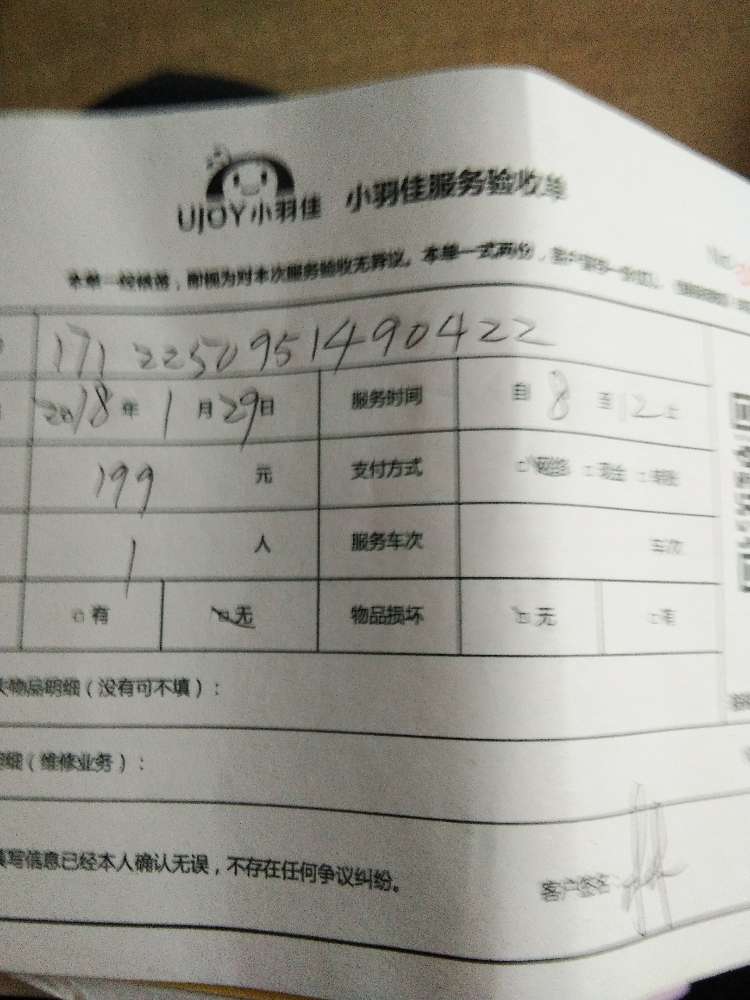 UJOY小羽佳 小羽佳服务验收单
本单一经核落，即视为对本次服务验收无异议。本单一式两份，
171225095149 0422
2018年1月29日 服务时间 自8至12止
199元 支付方式 网络 现金
1人 服务车次 车次
有 无 物品损坏 无 有
物品明细（没有可不填）：
（维修业务）：
填写信息已经本人确认无误，不存在任何争议纠纷。
客户签名：